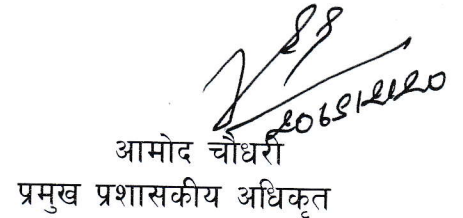 आमोद चौधरी
प्रमुख प्रशासकीय अधिकृत